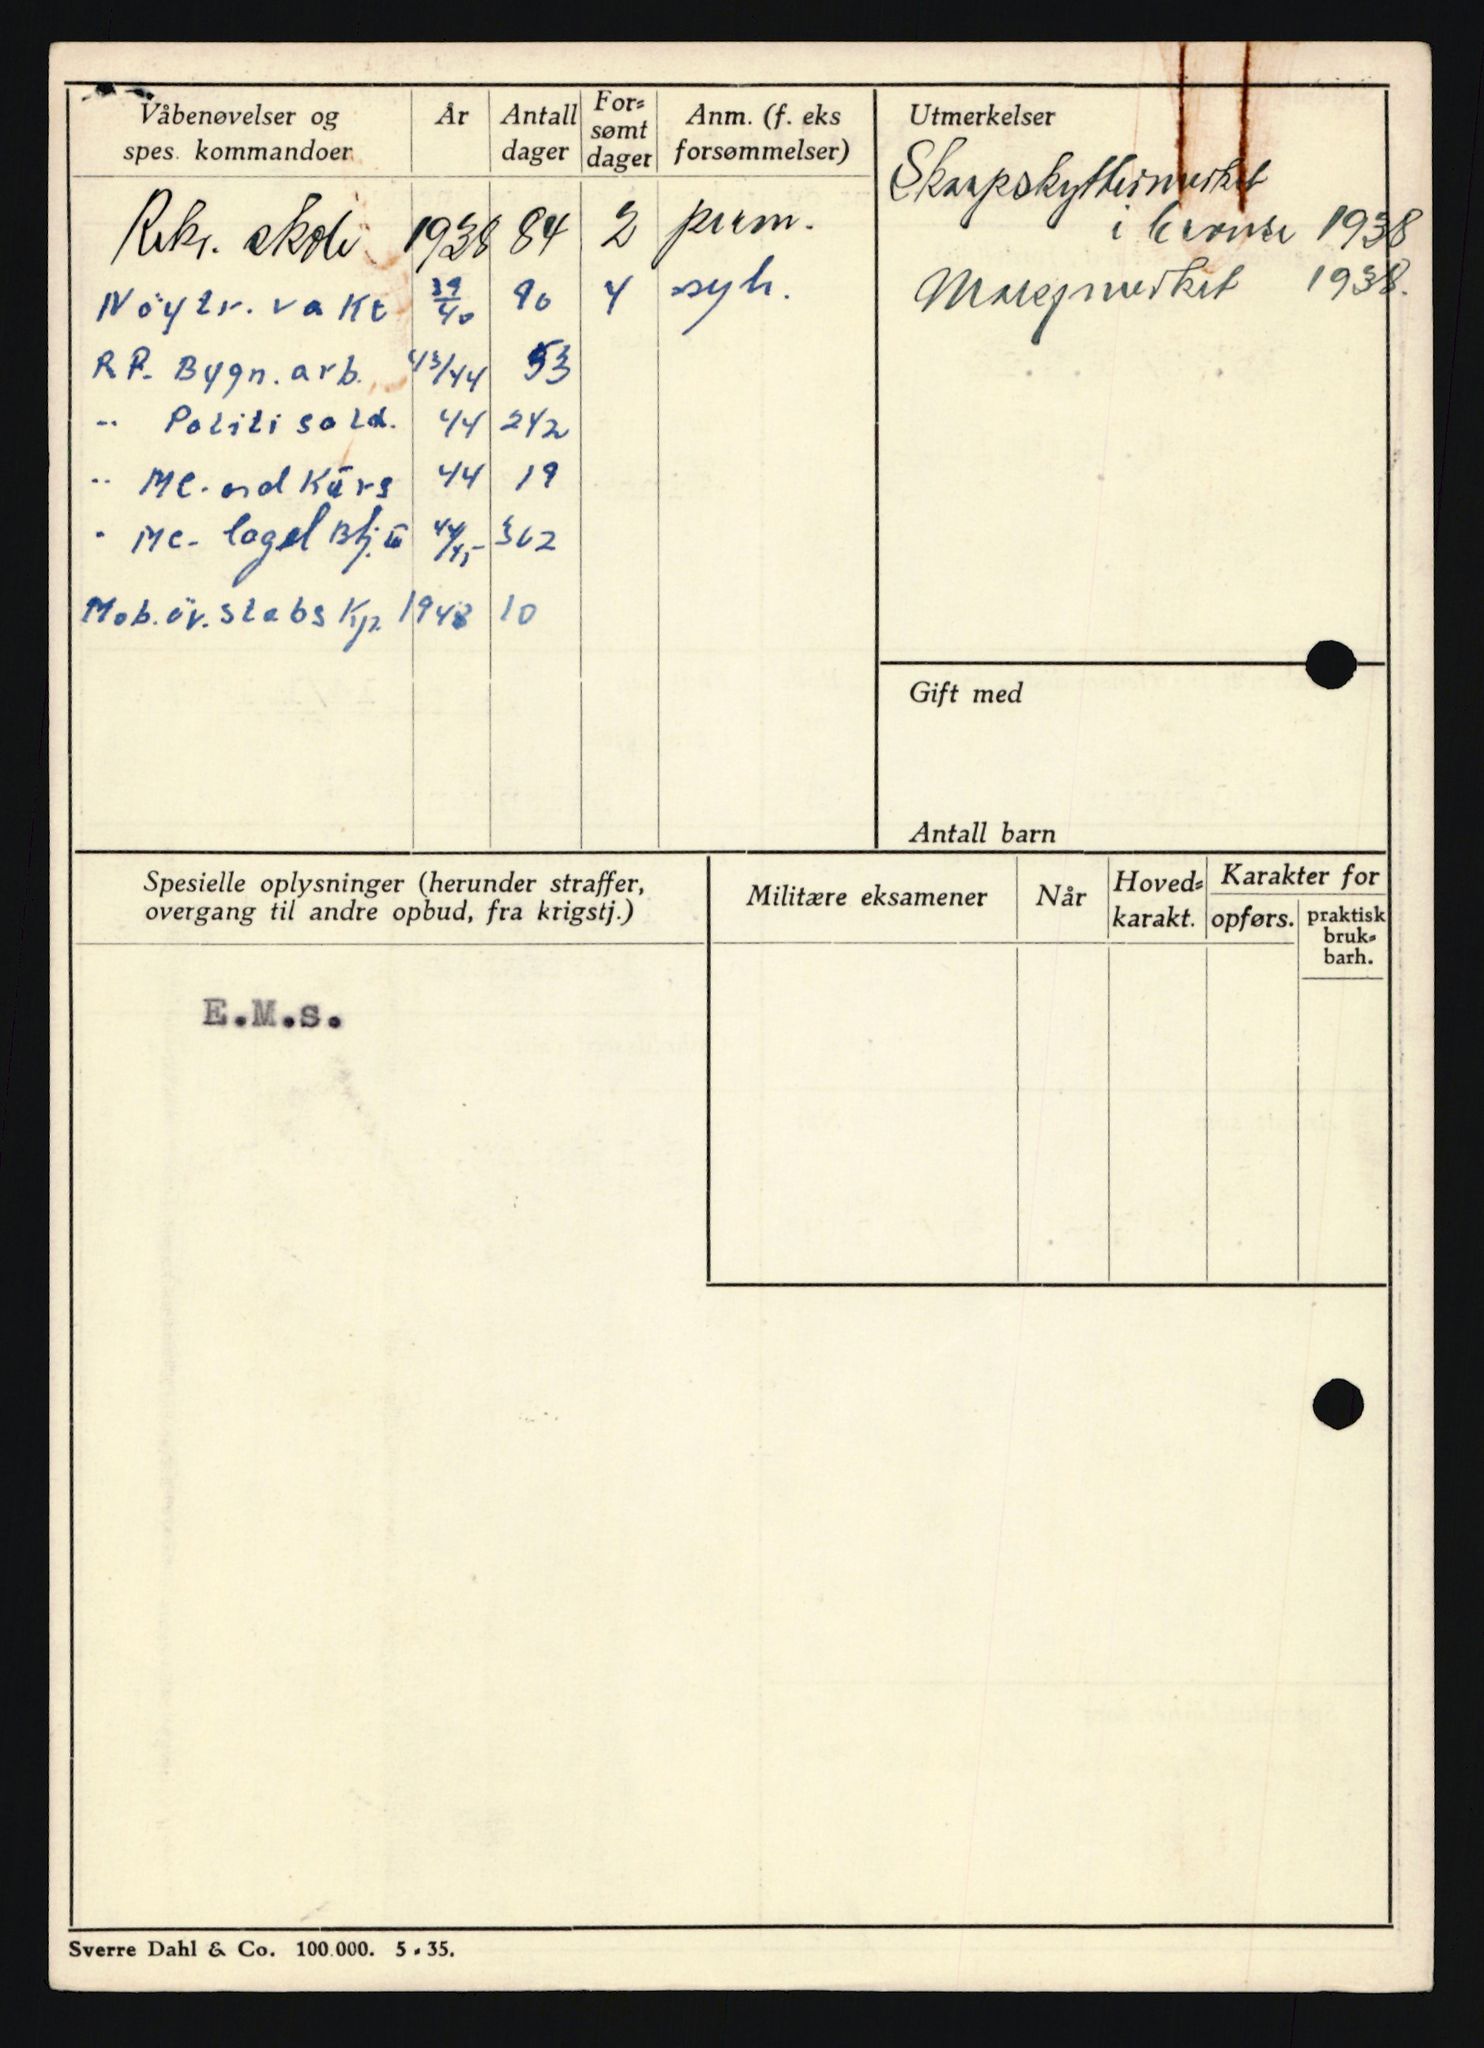 Våbenøvelser og
spes. kommandoer
År
Antall
dager
For-
sømt
dager
Anm. (f. eks
forsømmelser)
Rekr. skole 1938 84 2 perm.
Nöytr. vakt 39/40 90 4 syk.
R.P. Bygn. arb. 43/44 53
-"- Politisold. 44 242
-"- MC. ord Kürs 44 19
" MC- Btj. III 44/45
Mob. öv. stabs Kp. 1948 10
Utmerkelser
Skarpskyttermerket
i bronse 1938
Marsjmerket 1938.
Gift med
Antall barn
Spesielle oplysninger (herunder straffer,
overgang til andre opbud, fra krigstj.)
E.M.s.
Militære eksamener
Når
Hoved-
karakt.
Karakter for
opførs.
praktisk
bruk-
barh.
Sverre Dahl & Co. 100.000. 5 - 35.